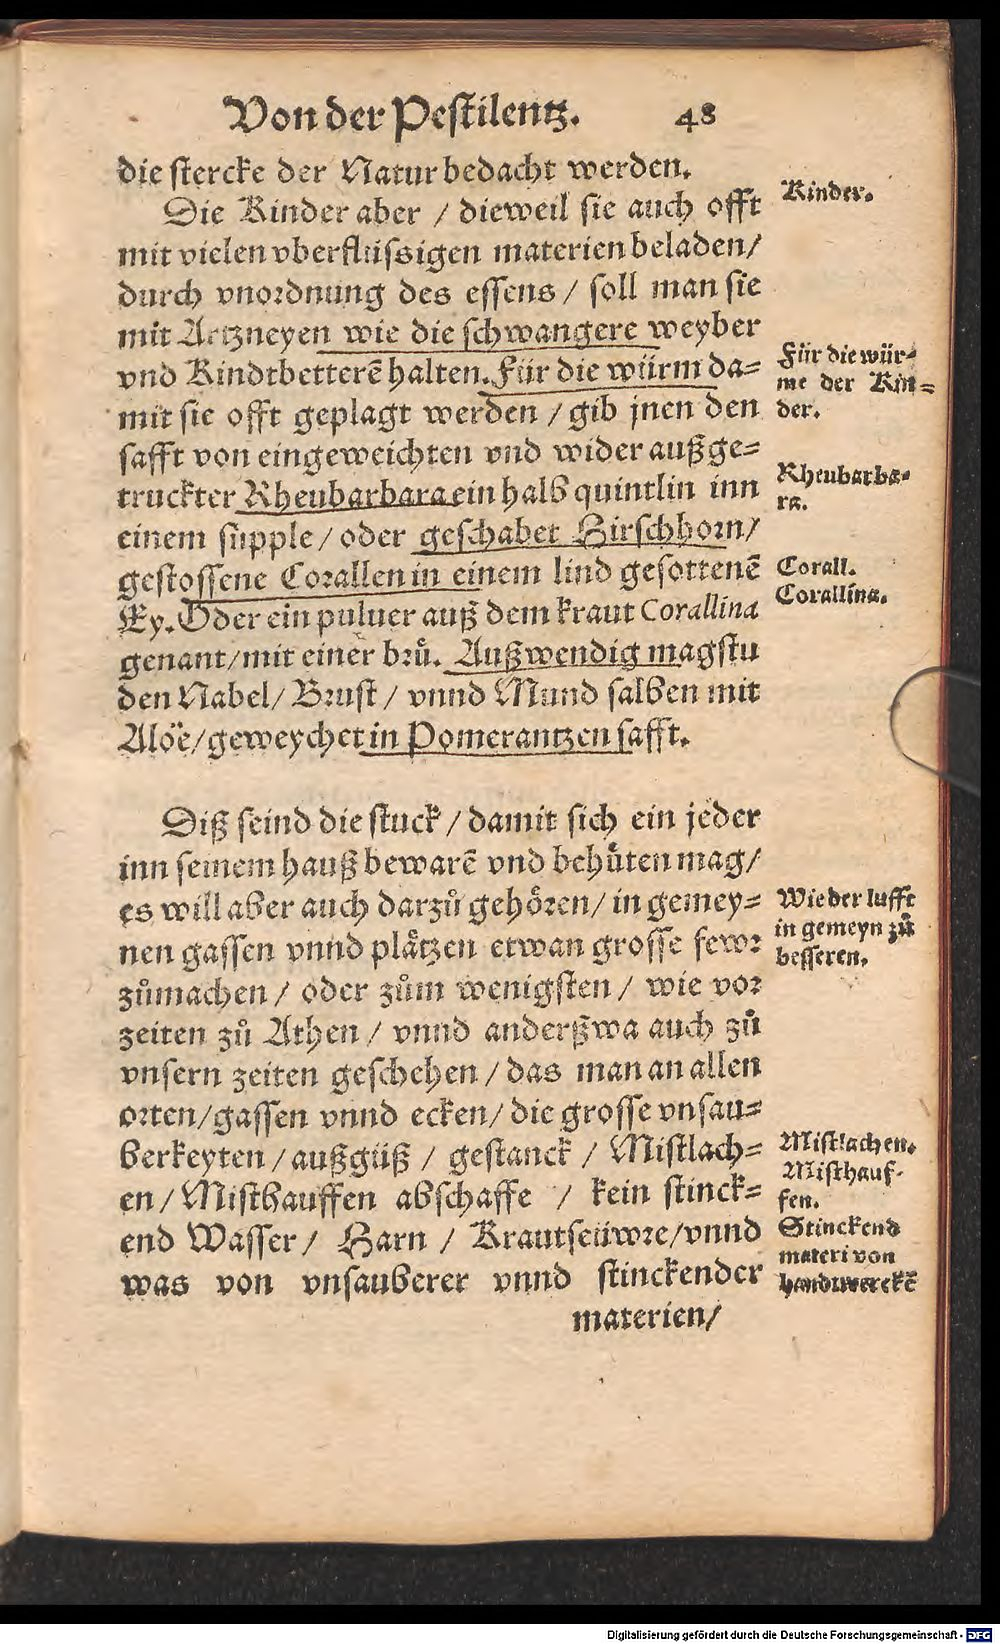 Von der Pestilentz. 48
die stercke der Natur bedacht werden.
Die Kinder aber / dieweil sie auch offt
Kinder.
mit vielen vberflüssigen materien beladen/
durch vnordnung des essens / soll man sie
mit Artzneyen wie die schwangere weyber
vnd Kindtbetterẽ halten. Für die würm da⸗
Für die wür⸗
me der Kin⸗
der.
mit sie offt geplagt werden / gib jnen den
safft von eingeweichten vnd wider außge⸗
truckter Rheubarbara ein halb quintlin inn
Rheubarba⸗
ra.
einem süpple / oder geschabet Hirschhorn/
gestossene Corallen in einem lind gesottenẽ
Corall.
Corallina.
Ey. Oder ein puluer auß dem kraut Corallina
genant/mit einer brů. Außwendig magstu
den Nabel/ Brust / vnnd Mund salben mit
Aloë/geweychet in Pomerantzen safft.
Diß seind die stuck / damit sich ein jeder
inn seinem hauß bewarẽ vnd behůten mag/
es will aber auch darzů gehoͤren/ in gemey⸗
Wie der lufft
in gemeyn zů
besseren.
nen gassen vnnd plaͤtzen etwan grosse fewr
zůmachen / oder zům wenigsten / wie vor
zeiten zů Athen / vnnd anderßwa auch zů
vnsern zeiten geschehen / das man an allen
orten/gassen vnnd ecken/ die grosse vnsau⸗
berkeyten/außgüß / gestanck / Mistlach⸗
Mistlachen.
Misthauf⸗
fen.
en / Misthauffen abschaffe / kein stinck⸗
end Wasser / Harn / Krautseüwre/vnnd
Stinckend
materi von
handtwerckẽ
was von vnsauberer vnnd stinckender
materien/
Digitalisierung gefördert durch die Deutsche Forschungsgemeinschaft - DFG